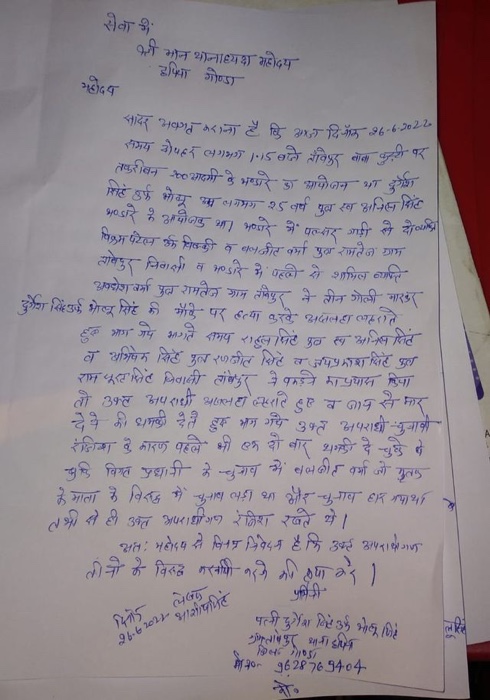 सेवा में
श्री मान थानाध्यक्ष महोदय
इटिया गोण्डा
महोदय
सादर अवगत कराना है कि आज दिनाँक 26-6-2022
समय दोपहर लगभग 1-15 बजे तांबेपुर बाबा कुट्टी पर
तकरीबन 200 आदमी के भण्डारे का आयोजन था दुर्गेश
सिंह उर्फ भोलू उम्र लगभग 25 वर्ष पुत्र स्व अनिल सिंह
भण्डारे के आयोजक था। भण्डारे में पल्सर गाड़ी से दो व्यक्ति
विक्रम पटेल उर्फ विक्की व बलजीत वर्मा पुत्र रामतेज ग्राम
तांबेपुर निवासी व भण्डारे में पहले से शामिल व्यक्ति
अवधेश वर्मा पुत्र रामतेज ग्राम तांबेपुर ने तीन गोली मारकर
दुर्गेश सिंह उर्फ भोलू सिंह की मौके पर हत्या करके असलहा लहराते
हुए भाग गये भागते समय राहुल सिंह पुत्र स्व अनिल सिंह
व अभिषेक सिंह पुत्र रणजीत सिंह व जयप्रकाश सिंह पुत्र
राम सिंह निवासी तांबेपुर ने पकड़ने का प्रयास किया
तो उक्त अपराधी असलहा लहराते हुए व जान से मार
देने की धमकी देते हुए भाग गये उक्त अपराधी चुनावी
रंजिश के कारण पहले भी एक दो बार धमकी दे चुके थे
चूंकि विगत प्रधानी के चुनाव में बलजीत वर्मा जो मृतक
के माता के विरुद्ध में चुनाव लड़ा था और चुनाव हार गया था
तभी से ही उक्त अपराधीगण रंजिश रखते थे।
अतः महोदय से विनम्र निवेदन है कि उक्त अपराधीगण
तीनों के विरुद्ध कार्यवाही करने की कृपा करें।
प्रार्थिनी
दिनाँक लेखक
26-6-2022
पत्नी दुर्गेश सिंह उर्फ भोलू सिंह
थाना इटिया
जिला गोण्डा
मो०न०- 9628769404